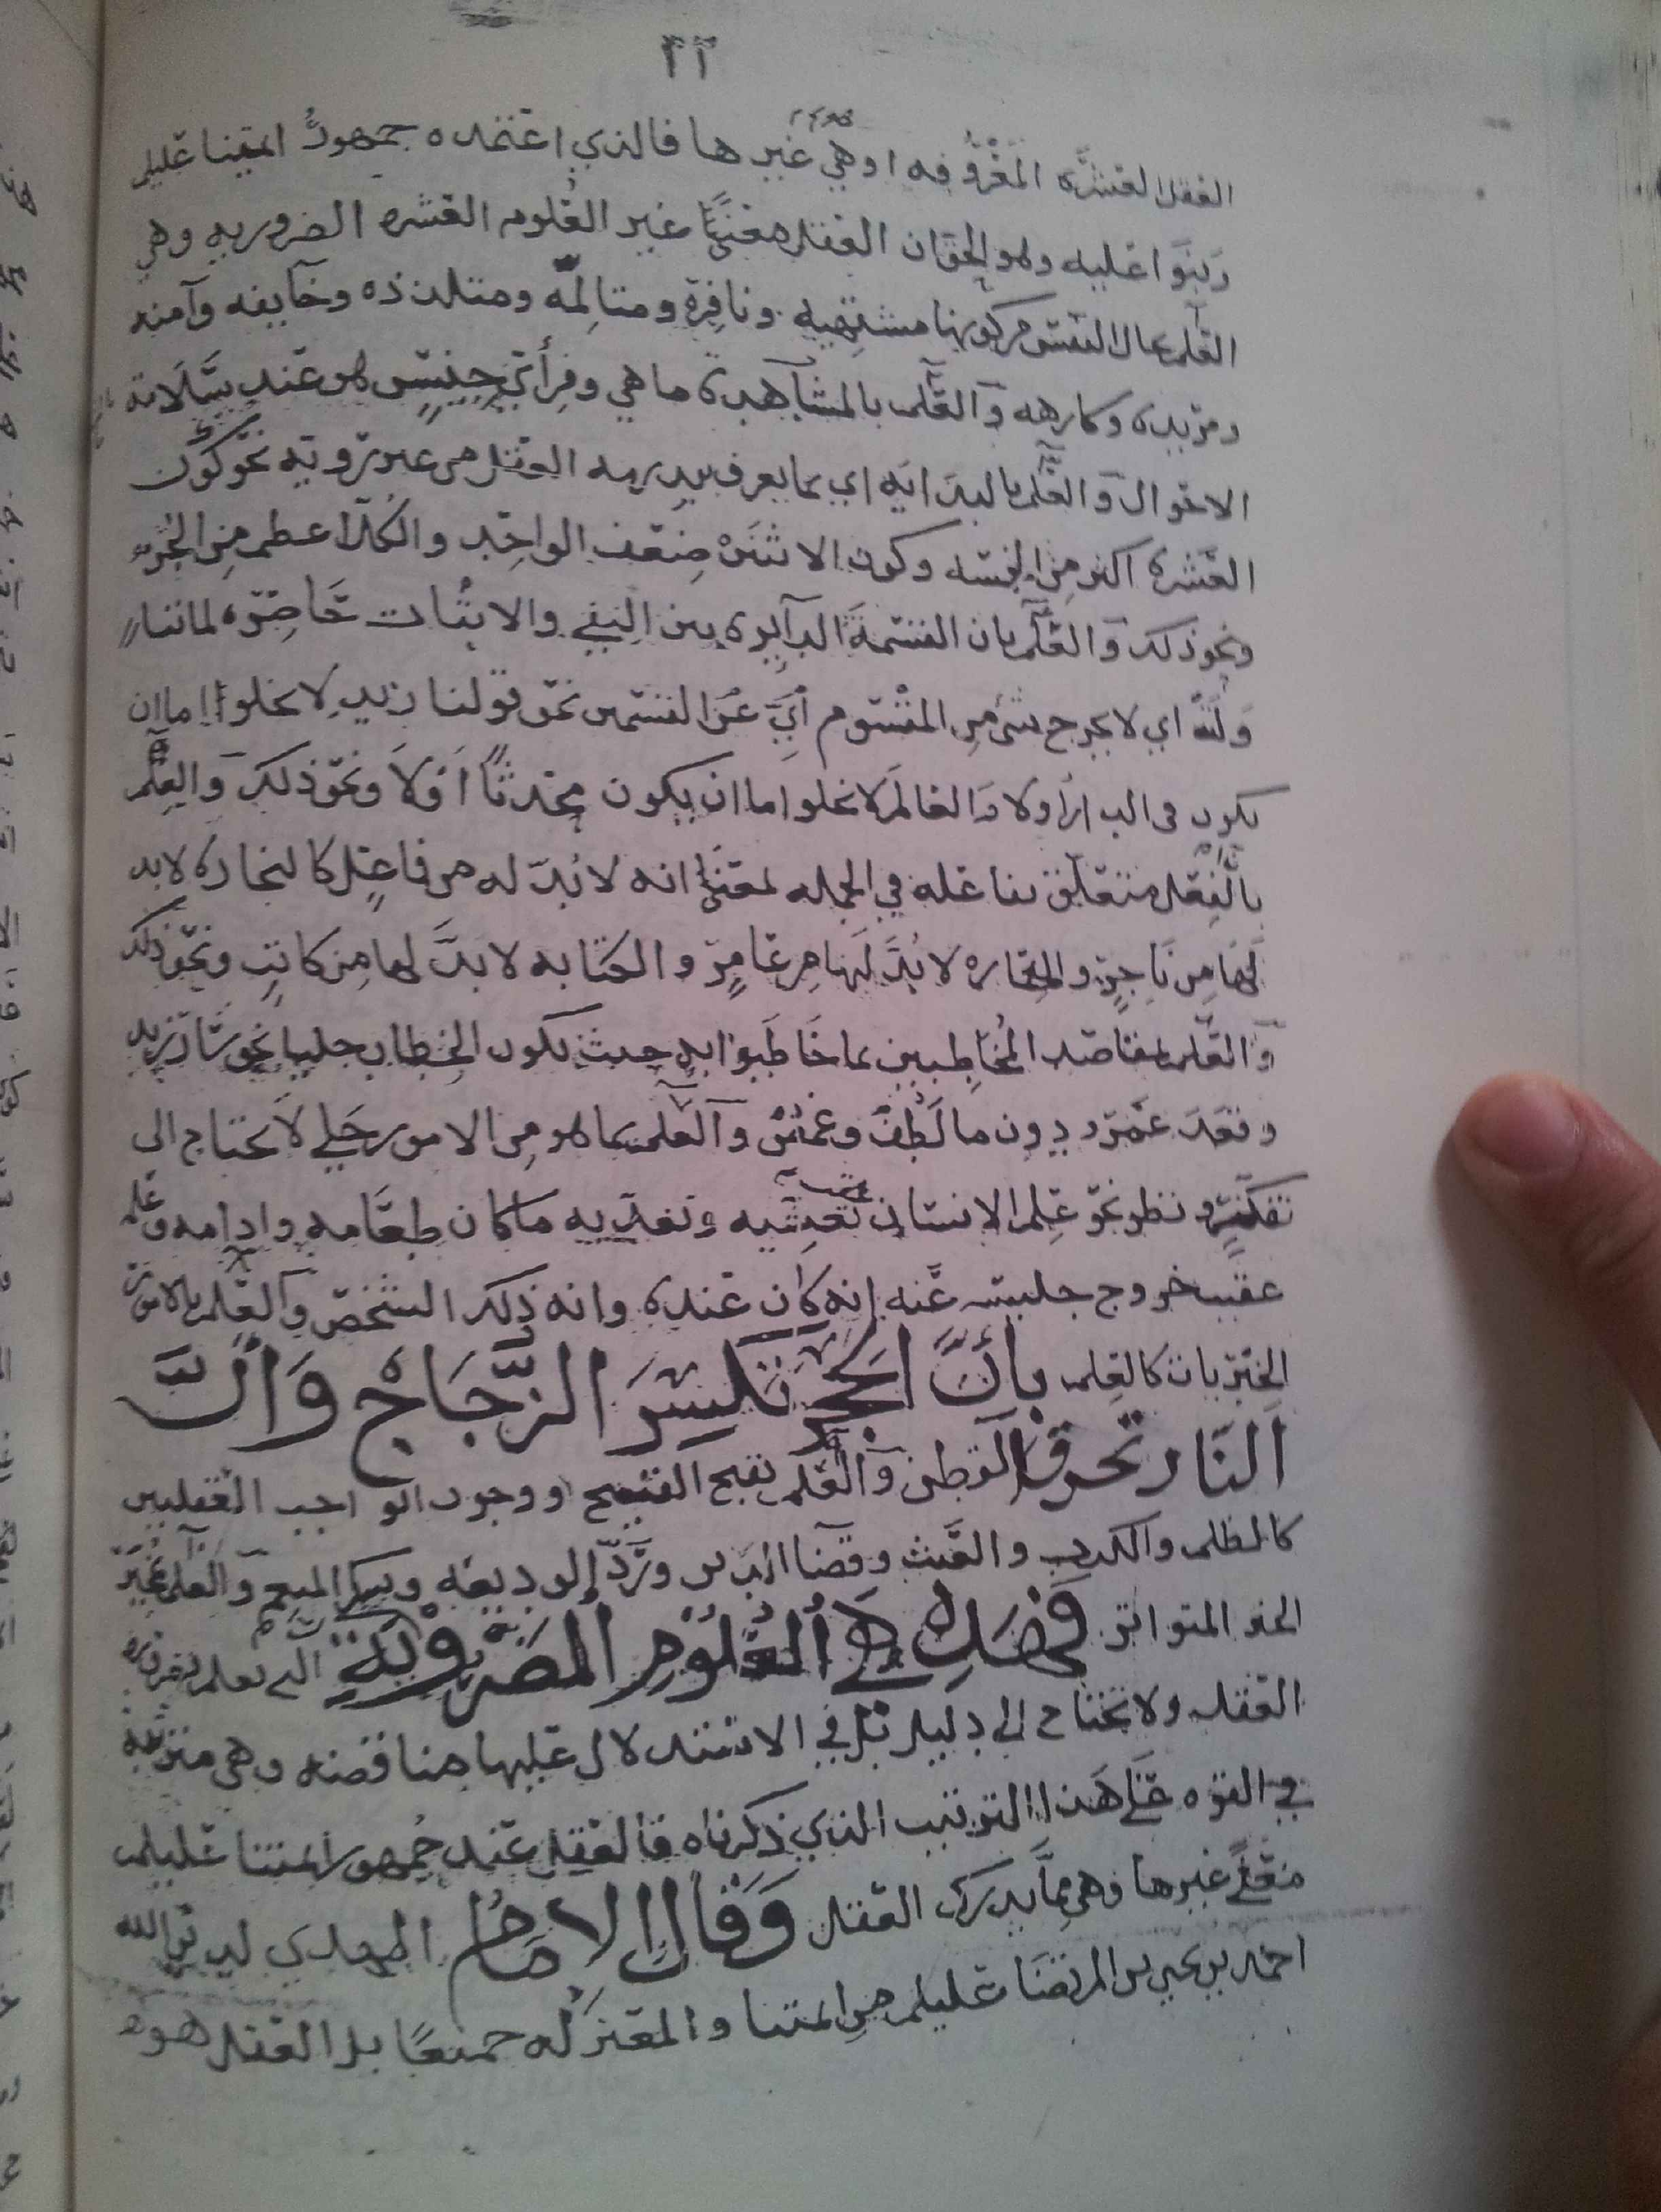 ٢٢
العقل العشره المعروفه او هي غيرها فالذي اعتمده جمهور ائمتنا عليلم
وبنوا عليه وهو الحق ان العقل معنى غير العلوم العشره الضروريه وهي
العلم بحال النفس من كونها مشتهيه ونافرة ومتألمه ومتلذذه وخايفه وآمنه
ومريده وكارهه والعلم بالمشاهدة ما هي ومن أي جنس هو عند سلامة
الاحوال والعلم بالبدايه اي بما يعرف ببديهه العقل من غير ترويه نحو كون
العشره اكثر من الخمسه وكون الاثنين ضعف الواحد والكل اعظم من الجزء
ونحو ذلك والعلم بان القسمة الدآيره بين النفي والاثبات حاضرة لما تنا
ولته اي لا يخرج شي من المقسوم أي عن القسمين نحو قولنا زيد لا يخلوا اما ان
يكون في الدار أو لا والعالم لا يخلوا اما ان يكون محدثا أو لا ونحو ذلك والعلم
بالفعل متعلق بفاعله في الجمله لمعنى انه لا بد له من فاعل كالنجاره لا بد
لها من ناجر والعماره لا بد لها من عامر والكتابه لا بد لها من كاتب ونحو ذلك
والعلم بمقاصد المخاطبين بما خاطبوا به حيث يكون الخطاب جليا نحو سار زيد
وقعد عمرو دون ما لطف وغمض والعلم بما هو من الامور جلي لا يحتاج الى
تفكر ونظر نحو علم الانسان تعشيه وتغديه ما كان طعامه وادامه وعلمه
عقيب خروج جليسه عنه انه كان عنده وانه ذلك الشخص والعلم بالامور
الخبريات كالعلم بأن الحجر تكسر الزجاج وأن
النار تحرق القطن والعلم بقبح القبيح ووجوب الواجب العقليين
كالظلم والكذب والعبث وقضاء الدين ورد الوديعه وشكر المنعم والعلم بمخبر
الخبر المتواتر فصل في العلوم الضروية التي تعلم بغريزه
العقل ولا تحتاج إلى دليل بل في الاستدلال عليها مناقضه وهي مترتبه
في القوه على هذا الترتيب الذي ذكرناه فالعقل عند جمهور ائمتنا عليلم
معنى غيرها وهي مما يدرك العقل وقال الامام المهدي لدين الله
احمد بن يحيى بن المرتضا عليلم من ائمتنا والمعتزله جميعا بل العقل هو